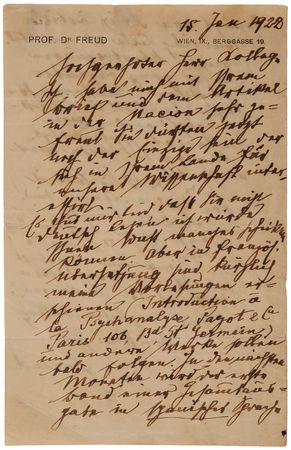 PROF. Dr. FREUD
WIEN, IX., BERGGASSE 19.
15. Jan 1922
Hochgeehrter Herr Kollege
Ich habe mich mit Ihrem
Brief und dem Artikel
in der Nacion sehr ge-
freut. Sie dürften jetzt
noch der einzige sein der
sich in Ihrem Lande für
unsere Wissenschaft inter-
essirt.
Es tut mir leid daß Sie nicht
Deutsch lesen ich würde
Ihnen sonst manches schicken
können. Aber in französ.
Übersetzung sind kürzlich
meine Vorlesungen er-
schienen Introduction à
la Psychanalyse Payot & Co
Paris 106, Bd St Germain)
und andere Werke sollen
bald folgen. In den nächsten
Monaten wird der erste
Band einer Gesamtaus-
gabe in spanischer Sprache